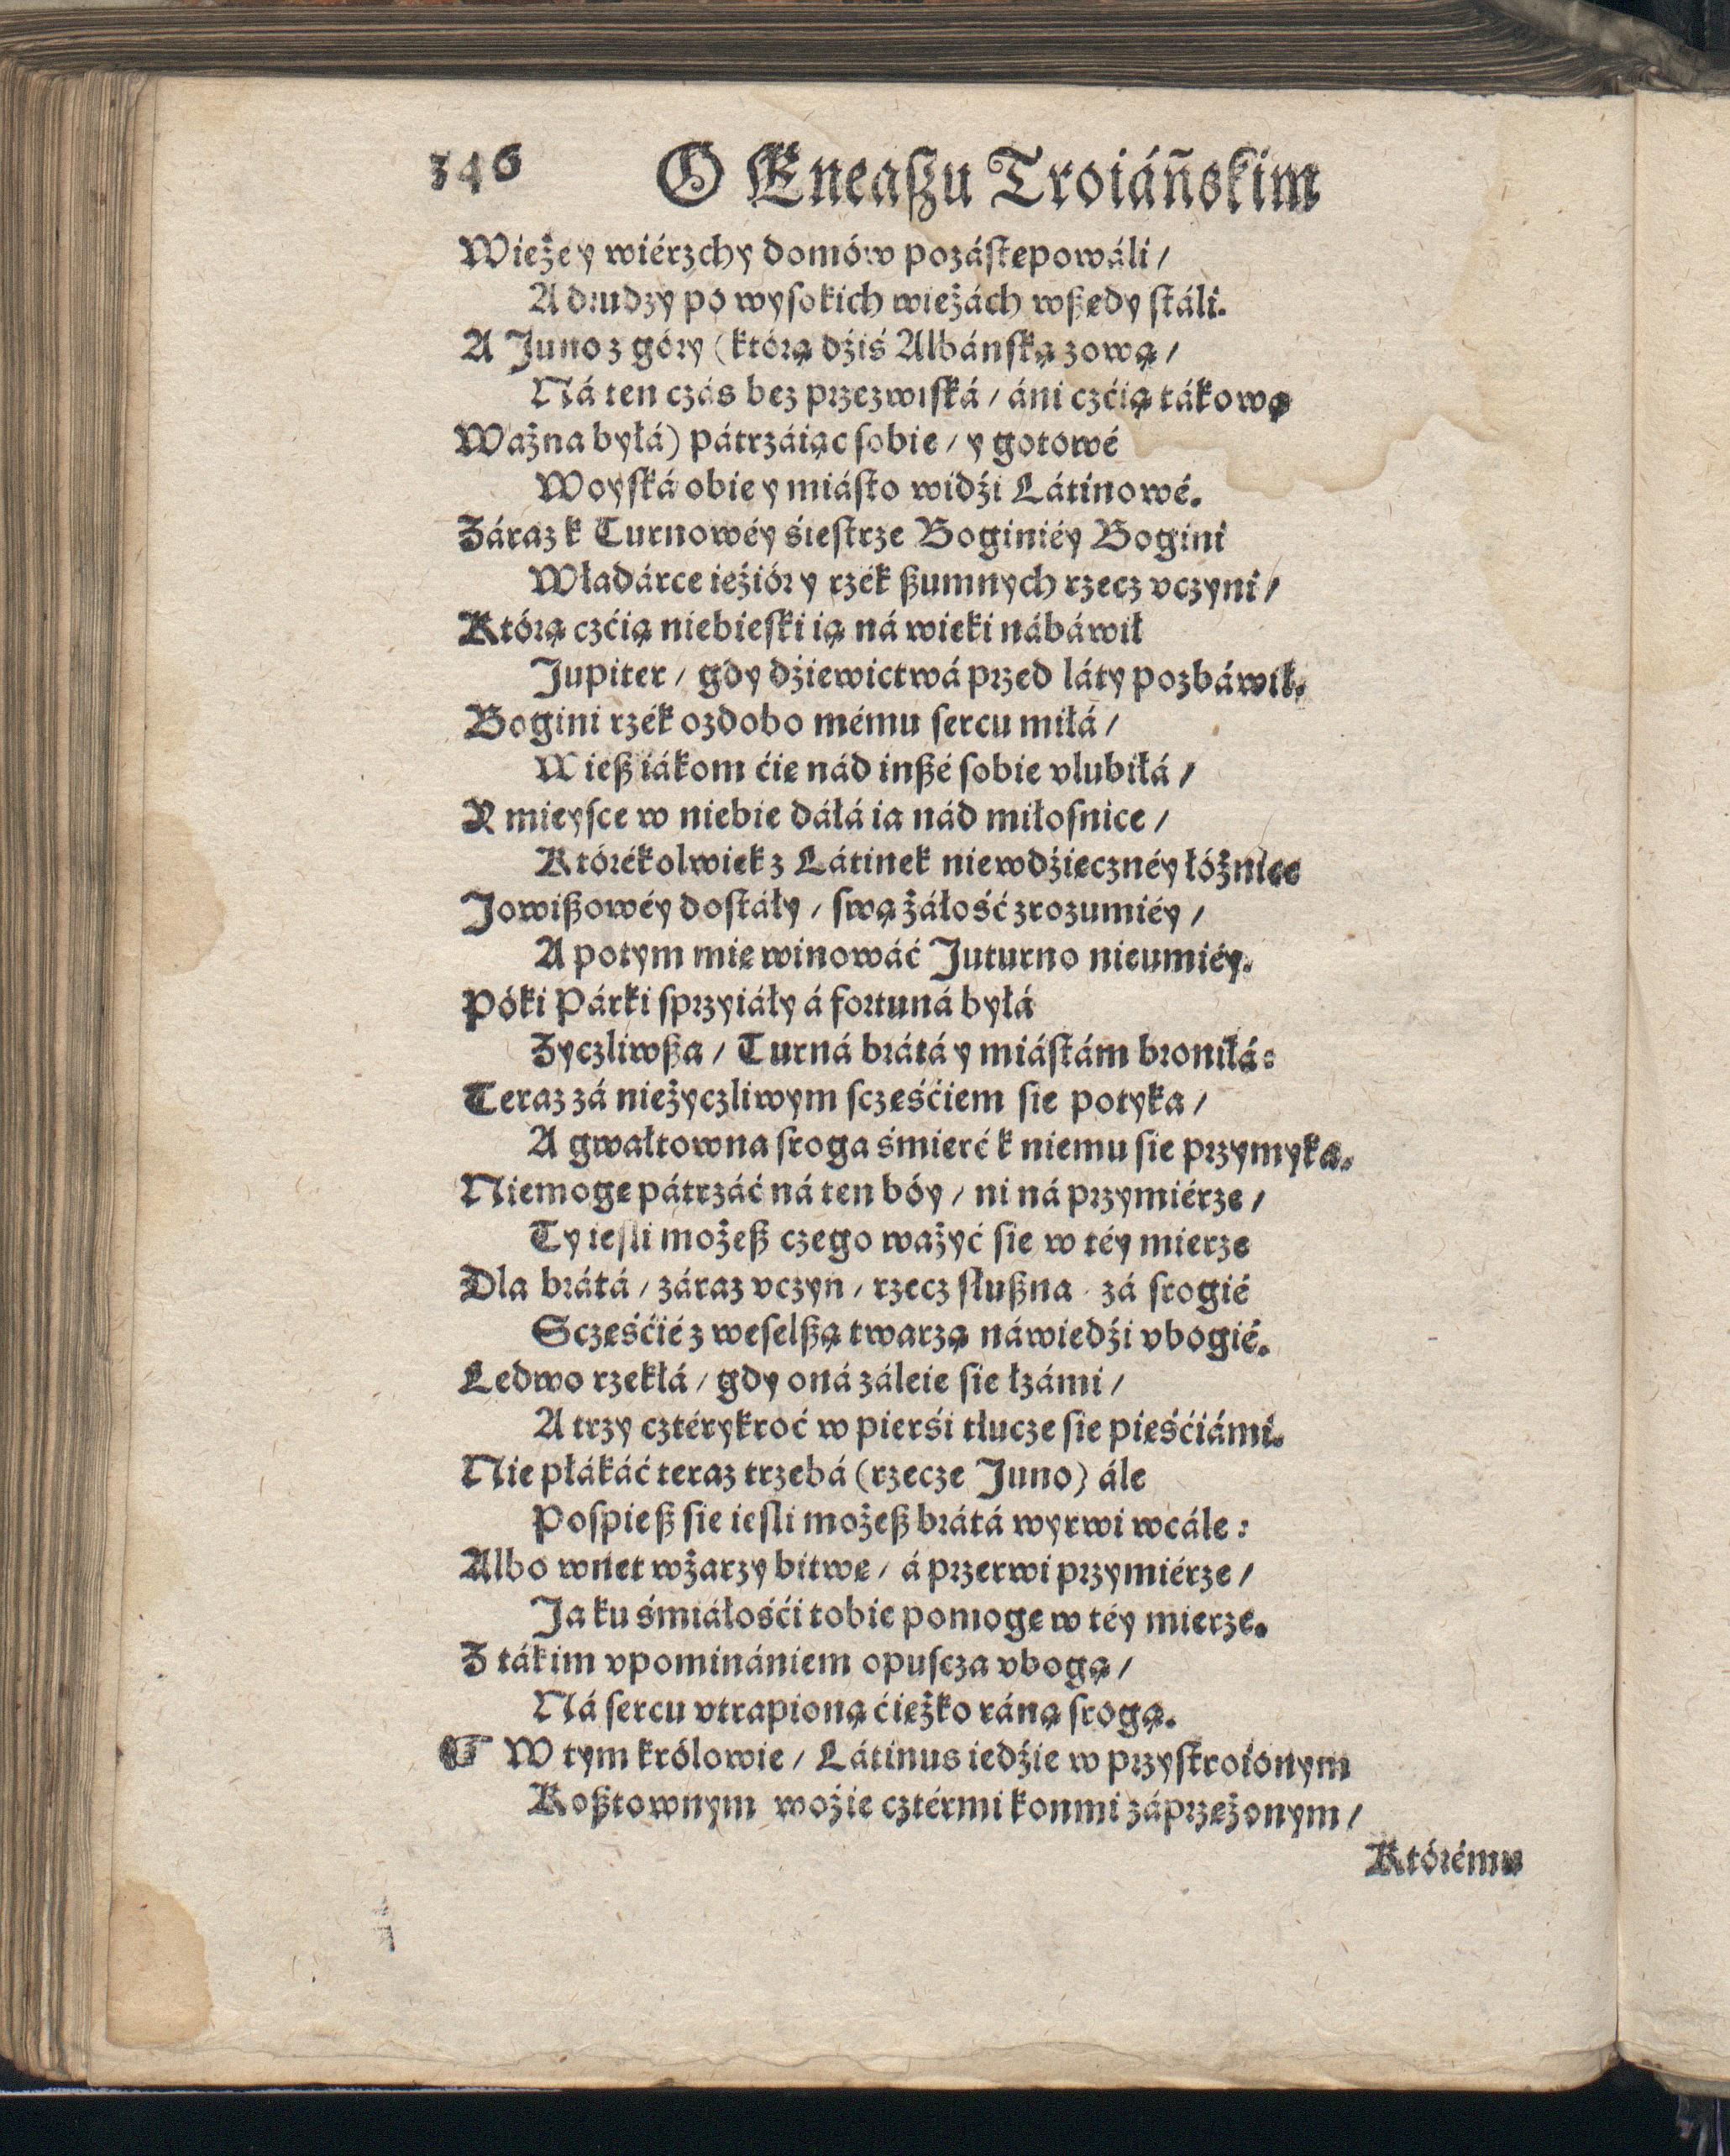 346 O Eneaſzu Troiáńskim
Wieże y wiérzchy domów pozáſtępowáli /
A drudzy po wyſokich wieżách wßędy ſtáli.
A Juno z góry (którą dźiś Albánſką zową /
Ná ten czás bez przezwiſká / áni czćią tákową
Ważna byłá) pátrzáiąc ſobie / y gotowé
Woyſká obie y miáſto widźi Látinowé.
Záraz k Turnowéy śieſtrze Boginiéy Bogini
Władárce ieźiór y rzék ßumnych rzecz vczyni /
Którą czćią niebieſki ią ná wieki nábáwił
Jupiter / gdy dźiewictwá przed láty pozbáwił.
Bogini rzék ozdobo mému ſercu miłá /
Wieß iákom ćię nád inßé ſobie vlubiłá /
Y mieyſce w niebie dáłá ia nád miłoſnice /
Którékolwiek z Látinek niewdźięcznéy łóżnice
Jowißowéy doſtáły / ſwą żáłość zrozumiéy /
A potym mię winowáć Juturno nieumiéy.
Póki Párki ſprzyiáły á fortuná byłá
Zyczliwßa / Turná brátá y miáſtám broniłá:
Teraz zá nieżyczliwym ſczęśćiem ſie potyka /
A gwałtowna ſroga śmierć k niemu ſie przymyka.
Niemogę pátrzáć ná ten bóy / ni ná przymiérze /
Ty ieſli możeß czego ważyć ſie w téy mierze
Dla brátá / záraz vczyń / rzecz ſłußna / zá ſrogié
Sczęśćié z weſelßą twarzą náwiedźi vbogié.
Ledwo rzekłá / gdy oná záleie ſie łzámi /
A trzy cztérykroć w pierśi tłucze ſie pieśćiámi.
Nie płákáć teraz trzebá (rzecze Juno) ále
Poſpieß ſie ieſli możeß brátá wyrwi wcále:
Albo wnet wżarzy bitwę / á przerwi przymiérze /
Ja ku śmiáłośći tobie pomogę w téy mierze.
Z tákim vpominániem opuſcza vbogą /
Ná ſercu vtrapioną ćiężko ráną ſrogą.
☾ W tym królowie / Látinus iedźie w przyſtroionym
Koßtownym woźie cztérmi konmi záprzężonym /
Którému